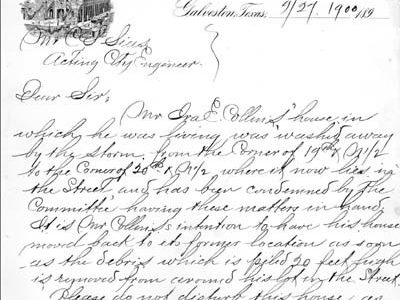 Galveston, Texas, 9/27 1900 189
Mr C J Sias
Acting City Engineer.
Dear Sir;
Mr Ira E. Collins' house in
which he was living was washed away
by the storm, from the Corner of 19th & N 1/2
to the Corner of 20th & N 1/2 where it now lies in
the Street and has been condemned by the
Committee having these matters in hand
It is Mr Collins's intention to have his house
moved back to its former location as soon
as the debris which is piled 20 feet high
is removed from around his lot in the Street.
Please do not disturb this house as